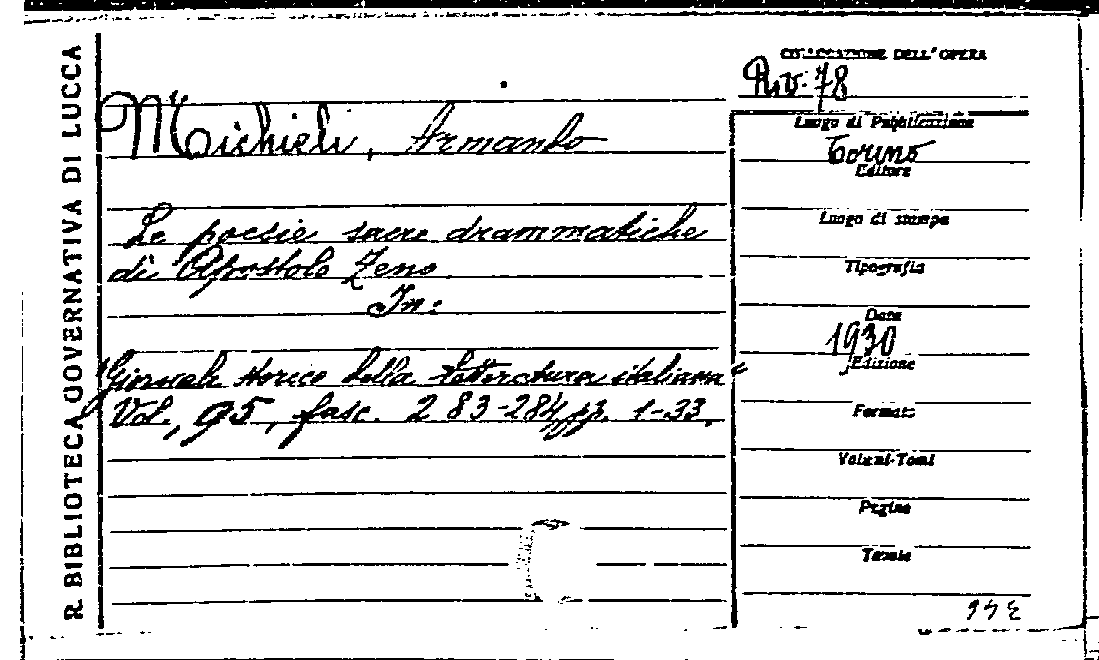 R. BIBLIOTECA GOVERNATIVA DI LUCCA
COLLOCAZIONE DELL'OPERA
Riv. 78
Michieli, Armando
Le poesie sacre drammatiche
di Apostolo Zeno
In:
"Giornale storico della letteratura italiana"
Vol., 95, fasc. 283-284, pp. 1-33.
Luogo di Pubblicazione
Torino
Editore
Luogo di stampa
Tipografia
Data
1930
Edizione
Formato
Volumi-Tomi
Pagine
Tavole